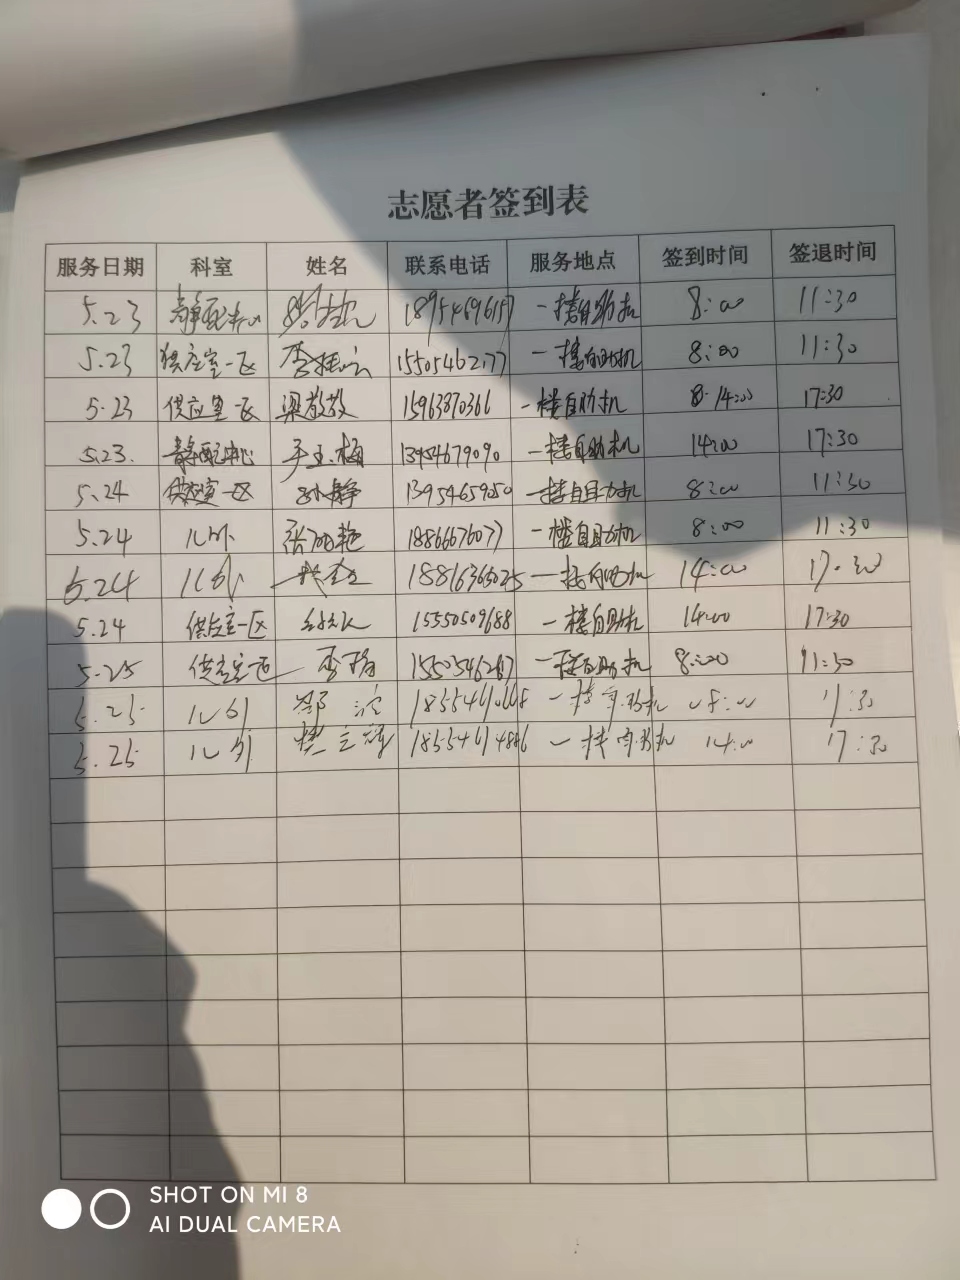 志愿者签到表
服务日期 科室 姓名 联系电话 服务地点 签到时间 签退时间
5.23 静配中心 一楼自助机 8:00 11:30
5.23 供应室一区 李 15505462177 一楼自助机 8:00 11:30
5.23 供应室一区 梁 15963870366 一楼自助机 8. 14:00 17:30
5.23. 静配中心 玉梅 13954679090 一楼自助机 14:00 17:30
5.24 供应室一区 静 13954659050 一楼自助机 8:00 11:30
5.24 儿外 张 艳 18866676077 一楼自助机 8:00 11:30
5.24 儿外 一楼自助机 14:00 17:30
5.24 供应室一区 15550509688 一楼自助机 14:00 17:30
5.25 供应室一区 李 一楼自助机 8:00 11:30
5.25 儿外 一楼自助机 8:00 11:30
5.25 儿外 18554614886 一楼自助机 14:00 17:30
SHOT ON MI 8
AI DUAL CAMERA